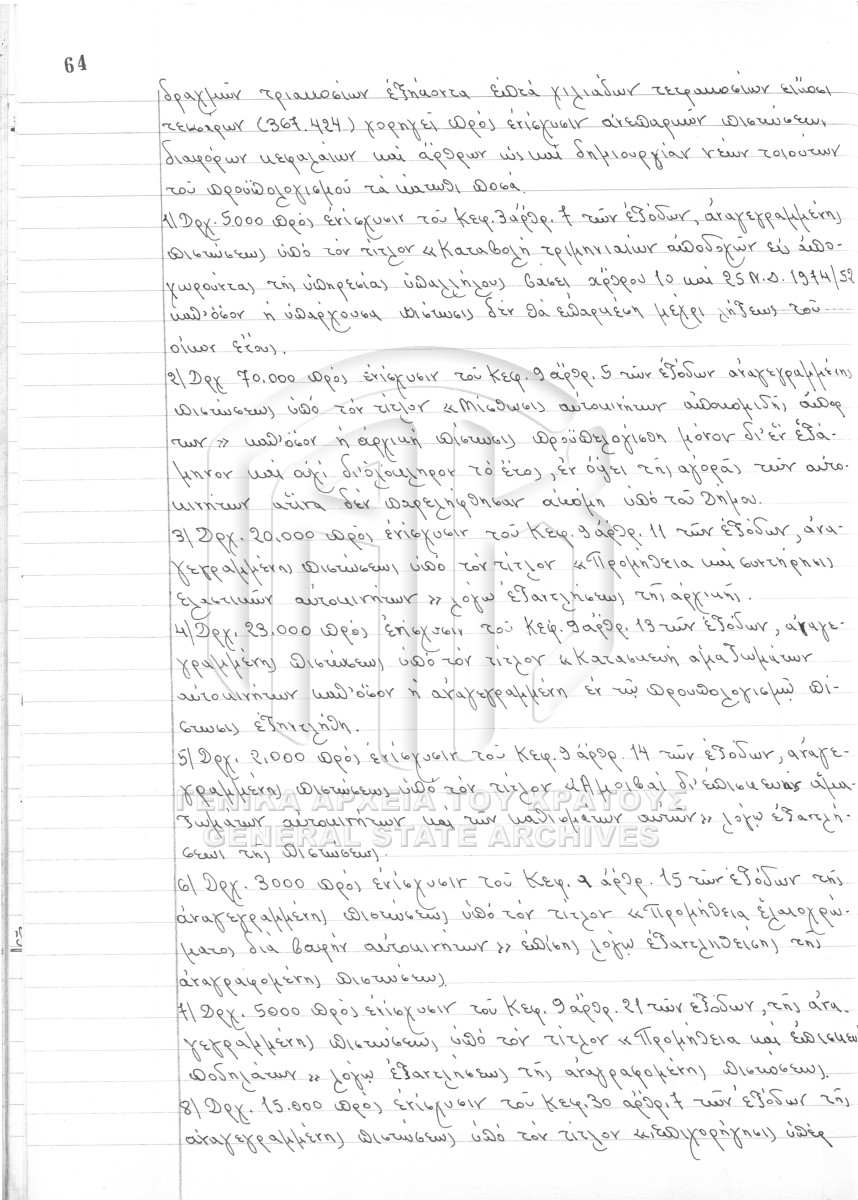 64
δραχμῶν τριακοσίων ἑξήκοντα ἑπτά χιλιάδων τετρακοσίων εἴκοσι
τεσσάρων (367.424) χορηγεῖ πρός ἐνίσχυσιν ἀνεπαρκῶν πιστώσεων,
διαφόρων κεφαλαίων καί ἄρθρων ὡς καί δημιουργίαν νέων τοιούτων
τοῦ προϋπολογισμοῦ τά κάτωθι ποσά.
1) Δρχ. 5.000 πρός ἐνίσχυσιν τοῦ Κεφ. 3 ἄρθρ. 7 τῶν ἐξόδων, ἀναγεγραμμένης
πιστώσεως ὑπό τόν τίτλον «Καταβολή τριμηνιαίων ἀποδοχῶν εἰς ἀπο-
χωροῦντας τῆς ὑπηρεσίας ὑπαλλήλους βάσει ἄρθρου 10 καί 25 Ν.Δ. 1974/52
καθ' ὅσον ἡ ὑπάρχουσα πίστωσις δέν θά ἐπαρκέσῃ μέχρι λήξεως τοῦ
οἰκον ἔτους.
2) Δρχ 70.000 πρός ἐνίσχυσιν τοῦ Κεφ. 9 ἄρθρ. 5 τῶν ἐξόδων ἀναγεγραμμένης
πιστώσεως ὑπό τόν τίτλον «Μίσθωσις αὐτοκινήτων ἀποκομιδῆς ἀπορ
των» καθ' ὅσον ἡ ἀρχική πίστωσις προϋπελογίσθη μόνον δι' ἕν ἑξά-
μηνον καί οὐχί δι' ὁλόκληρον τό ἔτος, ἐν ὄψει τῆς ἀγορᾶς τῶν αὐτο-
κινήτων ἅτινα δέν παρελήφθησαν ἀκόμη ὑπό τοῦ Δήμου.
3) Δρχ. 20.000 πρός ἐνίσχυσιν τοῦ Κεφ. 9 ἄρθρ. 11 τῶν ἐξόδων, ἀνα-
γεγραμμένης πιστώσεως ὑπό τόν τίτλον «Προμήθεια καί συντήρησις
ἐλαστικῶν αὐτοκινήτων» λόγῳ ἐξαντλήσεως τῆς ἀρχικῆς.
4) Δρχ. 23.000 πρός ἐνίσχυσιν τοῦ Κεφ. 9 ἄρθρ. 13 τῶν ἐξόδων, ἀναγε-
γραμμένης πιστώσεως ὑπό τόν τίτλον «Κατασκευή ἀμαξωμάτων
αὐτοκινήτων καθ' ὅσον ἡ ἀναγεγραμμένη ἐν τῷ προϋπολογισμῷ πί-
στωσις ἐξηντλήθη.
5) Δρχ. 2.000 πρός ἐνίσχυσιν τοῦ Κεφ. 9 ἄρθρ. 14 τῶν ἐξόδων, ἀναγε-
γραμμένης πιστώσεως ὑπό τόν τίτλον «Ἀμοιβαί δι' ἐπισκευάς ἁμα-
ξωμάτων αὐτοκινήτων καί τῶν καθισμάτων αὐτῶν» λόγῳ ἐξαντλή-
σεως τῆς πιστώσεως.
6) Δρχ. 3000 πρός ἐνίσχυσιν τοῦ Κεφ. 9 ἄρθρ. 15 τῶν ἐξόδων τῆς
ἀναγεγραμμένης πιστώσεως ὑπό τόν τίτλον «Προμήθεια ἐλαιοχρώ-
ματος διά βαφήν αὐτοκινήτων» ἐπίσης λόγῳ ἐξαντληθείσης τῆς
ἀναγραφομένης πιστώσεως
7) Δρχ. 5000 πρός ἐνίσχυσιν τοῦ Κεφ. 9 ἄρθρ. 21 τῶν ἐξόδων, τῆς ἀνα-
γεγραμμένης πιστώσεως ὑπό τόν τίτλον «Προμήθεια καί ἐπισκευή
ποδηλάτων» λόγῳ ἐξαντλήσεως τῆς ἀναγραφομένης πιστώσεως.
8) Δρχ. 15.000 πρός ἐνίσχυσιν τοῦ Κεφ. 30 ἄρθρ. 7 τῶν ἐξόδων τῆς
ἀναγεγραμμένης πιστώσεως ὑπό τόν τίτλον «ἐπιχορήγησις ὑπέρ
ΓΕΝΙΚΑ ΑΡΧΕΙΑ ΤΟΥ ΚΡΑΤΟΥΣ
GENERAL STATE ARCHIVES